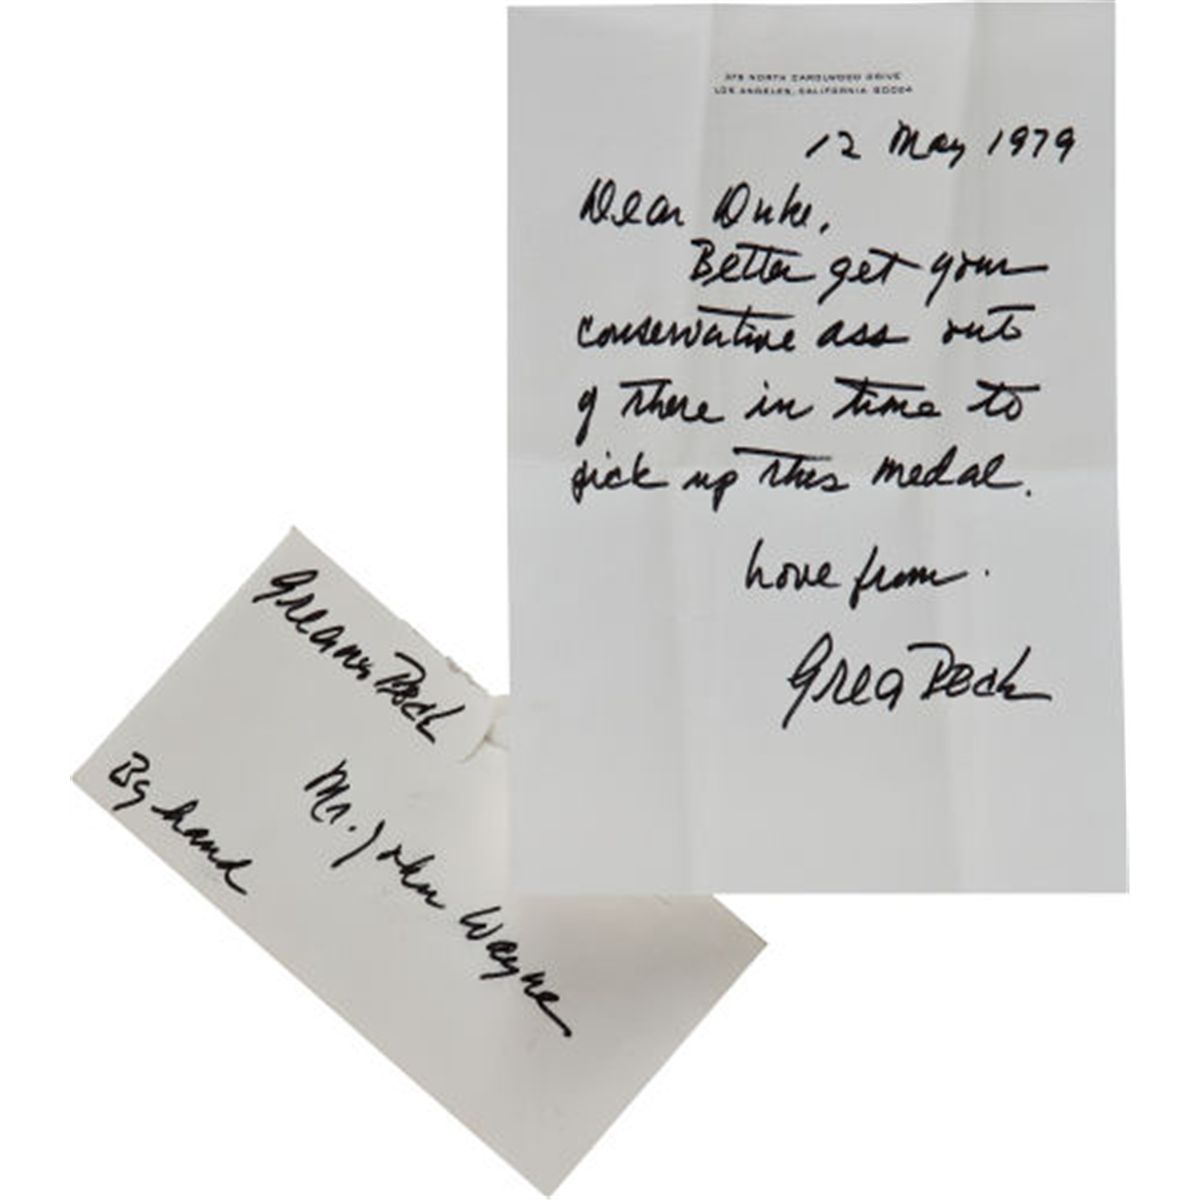 375 NORTH CAROLWOOD DRIVE
LOS ANGELES, CALIFORNIA 90024
12 May 1979
Dear Duke,
Better get your
conservative ass out
of there in time to
pick up this medal.
Love from
Greg Peck
Gregory Peck
By hand
Mr. John Wayne